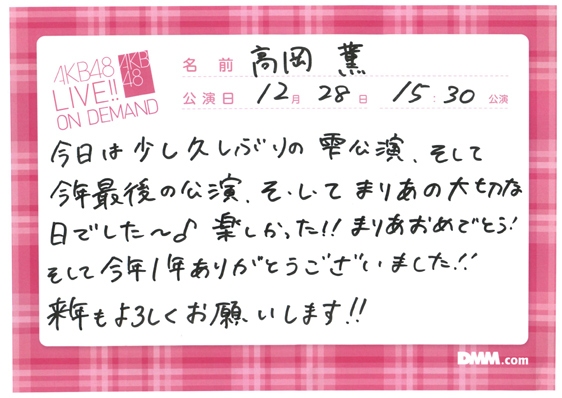 AKB48
LIVE!!
ON DEMAND
AKB
48
名前 高岡 薫
公演日 12月 28日 15:30 公演
今日は少し久しぶりの雫公演、そして
今年最後の公演、そしてまりあの大切な
日でした〜♪楽しかった!!まりあおめでとう!
そして今年1年ありがとうございました!!
来年もよろしくお願いします!!
DMM.com